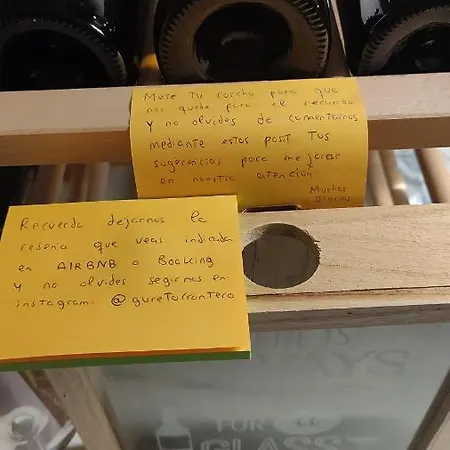 Mete Tu corcho para que
nos quede para el recuerdo
y no olvides de comentarnos
mediante estos posit Tus
sugerencias para mejorar
en nuestra atención
Muchas
gracias
Recuerda dejarnos le
reseña que veas indicada
en AIRBNB o Booking
y no olvides segirnos en:
instagram: @guretorrontero
IS
WAYS
FOR
GLASS